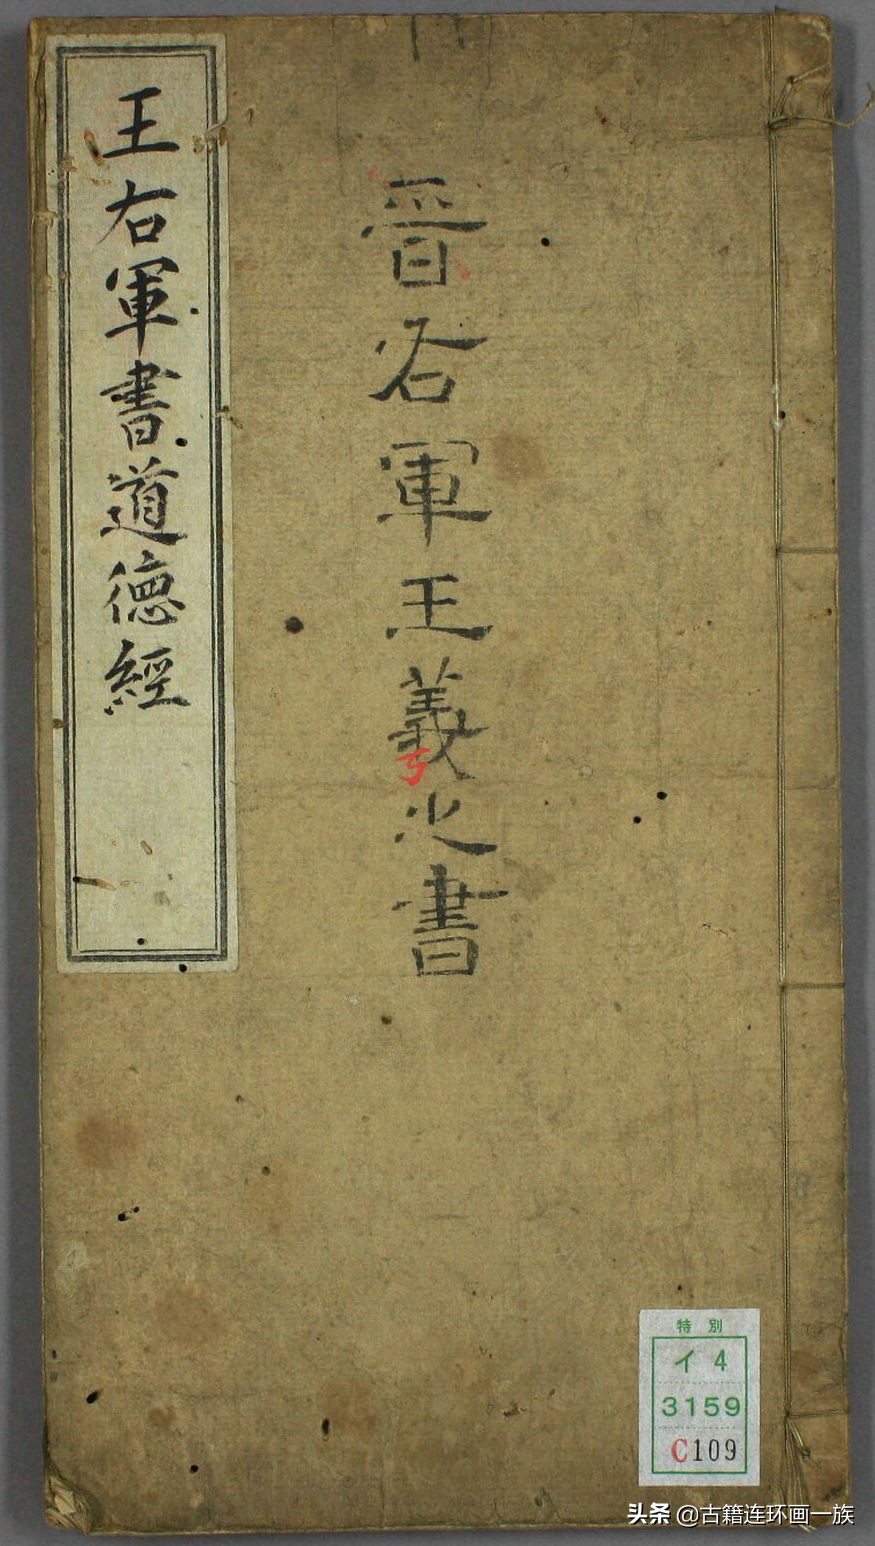 晉右軍王羲之書
王右軍書道德經
特別
イ4
3159
C109
头条 @古籍连环画一族